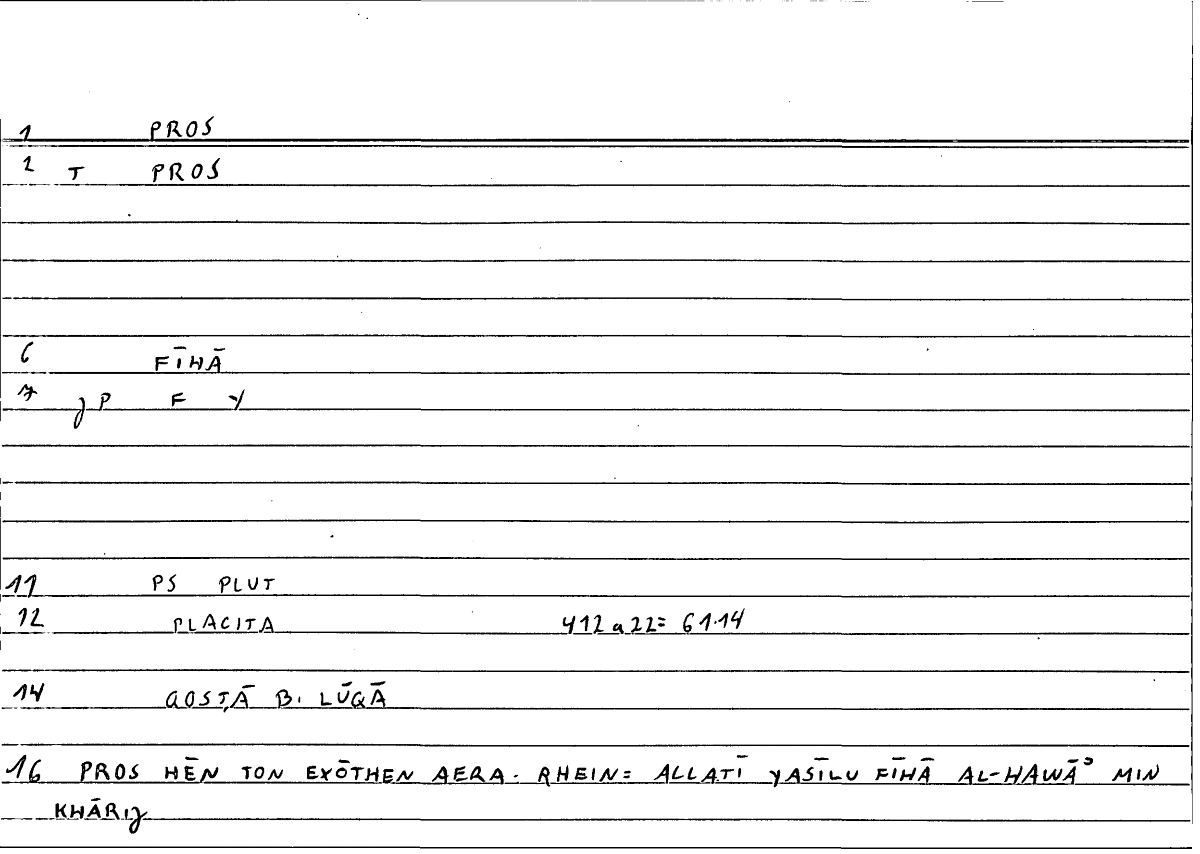 1 PROS
2 T PROS
6 FĪHĀ
7 J P F Y
11 PS PLUT
12 PLACITA 412 a 22 = 61.14
14 QOSṬĀ B. LŪQĀ
16 PROS HĒN TON EXŌTHEN AERA. RHEIN = ALLATĪ YASĪLU FĪHĀ AL-HAWĀʾ MIN
KHĀRIJ